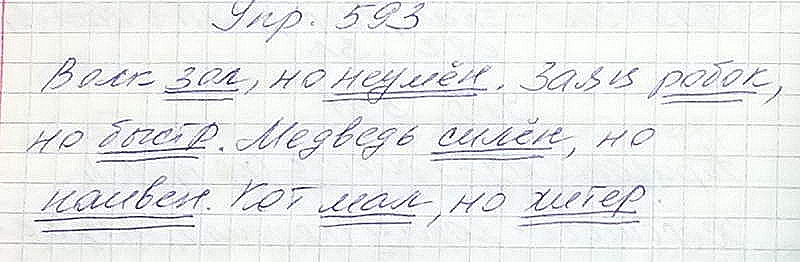 Упр. 593
Волк зол, но неумён. Заяц робок,
но быстр. Медведь силён, но
наивен. Кот мал, но хитер.